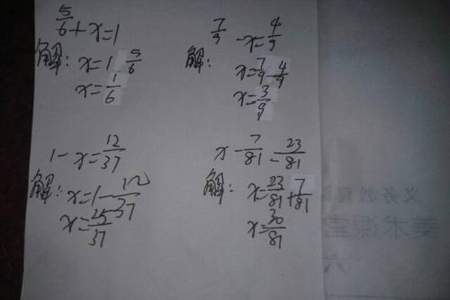 5/6+x=1
解：x=1 5/6
x=1/6
7/9-x=4/9
x=7/9-4/9
x=3/9
1-x=12/37
解：x=1-12/37
x=25/37
x-7/81=23/81
解：x=23/81+7/81
x=30/81